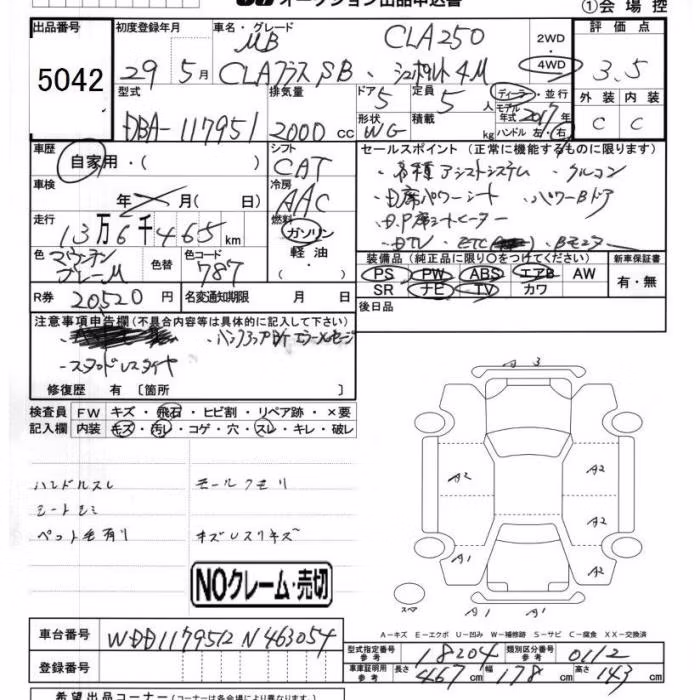 オークション出品申込書
①会場控
出品番号 初度登録年月 車名・グレード 2WD 評価点
5042 29年5月 MB CLA250 4WD 3.5
CLAクラスSB・シュポルト4M
型式 排気量 ドア 5 定員 5人 ディーラー・並行 外装 内装
DBA-117951 2000cc 形状 WG 積載 kg モデル年式 2017年 C C
ハンドル 左・右
車歴 シフト セールスポイント(正常に機能するものに限ります)
自家用・( ) CAT ・各種アシストシステム ・クルコン
車検 冷房 ・D席パワーシート ・パワーBドア
年 月( 日) AAC ・D.P席シートヒーター
走行 燃料 ・DTV ・ETC ・Bモニター
13万6千465km ガソリン
軽油 装備品(純正品に限り○をつけてください) 新車保証書
色 色替 色コード ・ PS PW ABS エアB AW 有・無
マウンテングレーM 787 SR ナビ TV カワ
R券 20520円 名変通知期限 月 日 後日品
注意事項申告欄(不具合内容等は具体的に記入して下さい)
・スタッドレスタイヤ
修復歴 有 [箇所 ]
検査員 FW キズ・飛石・ヒビ割・リペア跡・×要
記入欄 内装 キズ・汚レ・コゲ・穴・スレ・キレ・破レ
A3
ハンドルスレ モールクモリ
A2 A2
シートシミ
A2
ペット毛有り キズレスリキズ
A1 A2
NOクレーム・売切
スペア A1 A1
A-キズ E-エクボ U-凹み W-補修跡 S-サビ C-腐食 XX-交換済
車台番号 WDD1179512N463054 型式指定番号 参考 18204 類別区分番号 参考 0112
登録番号 車庫証明用 参考 長さ 467cm 幅 178cm 高さ 143cm
希望出品コーナー(コーナーは各会場により異なります)